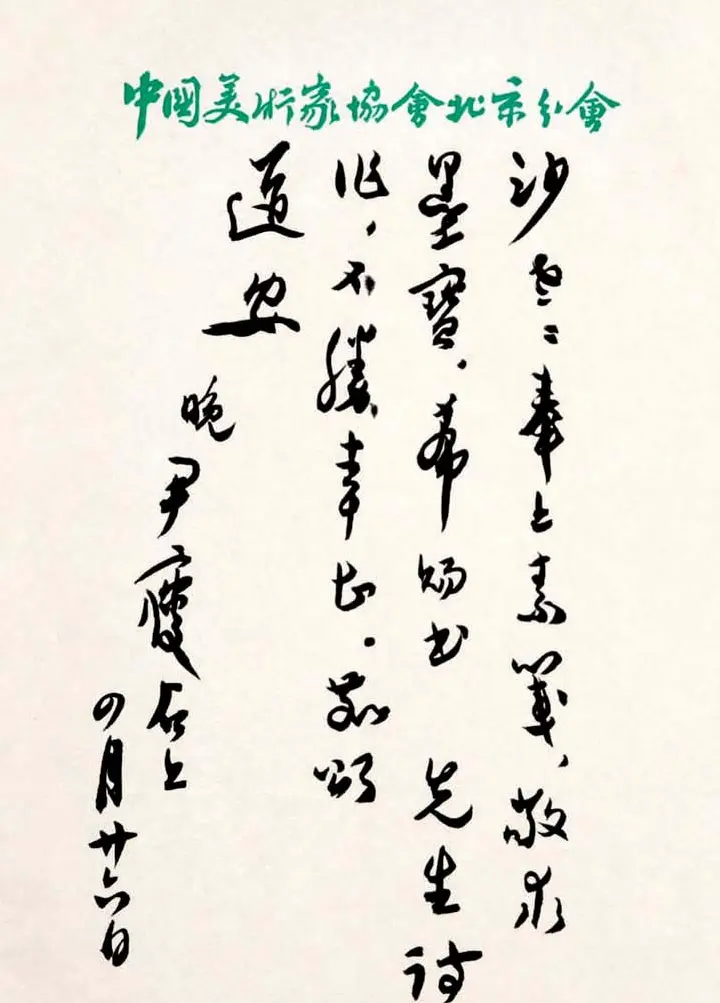 中國美術家協會北京分會
沙老：奉上素箋，敬求
墨寶，希赐书 先生诗
作，不勝幸甚。颂
道安
晚尹瘦石上
四月廿六日